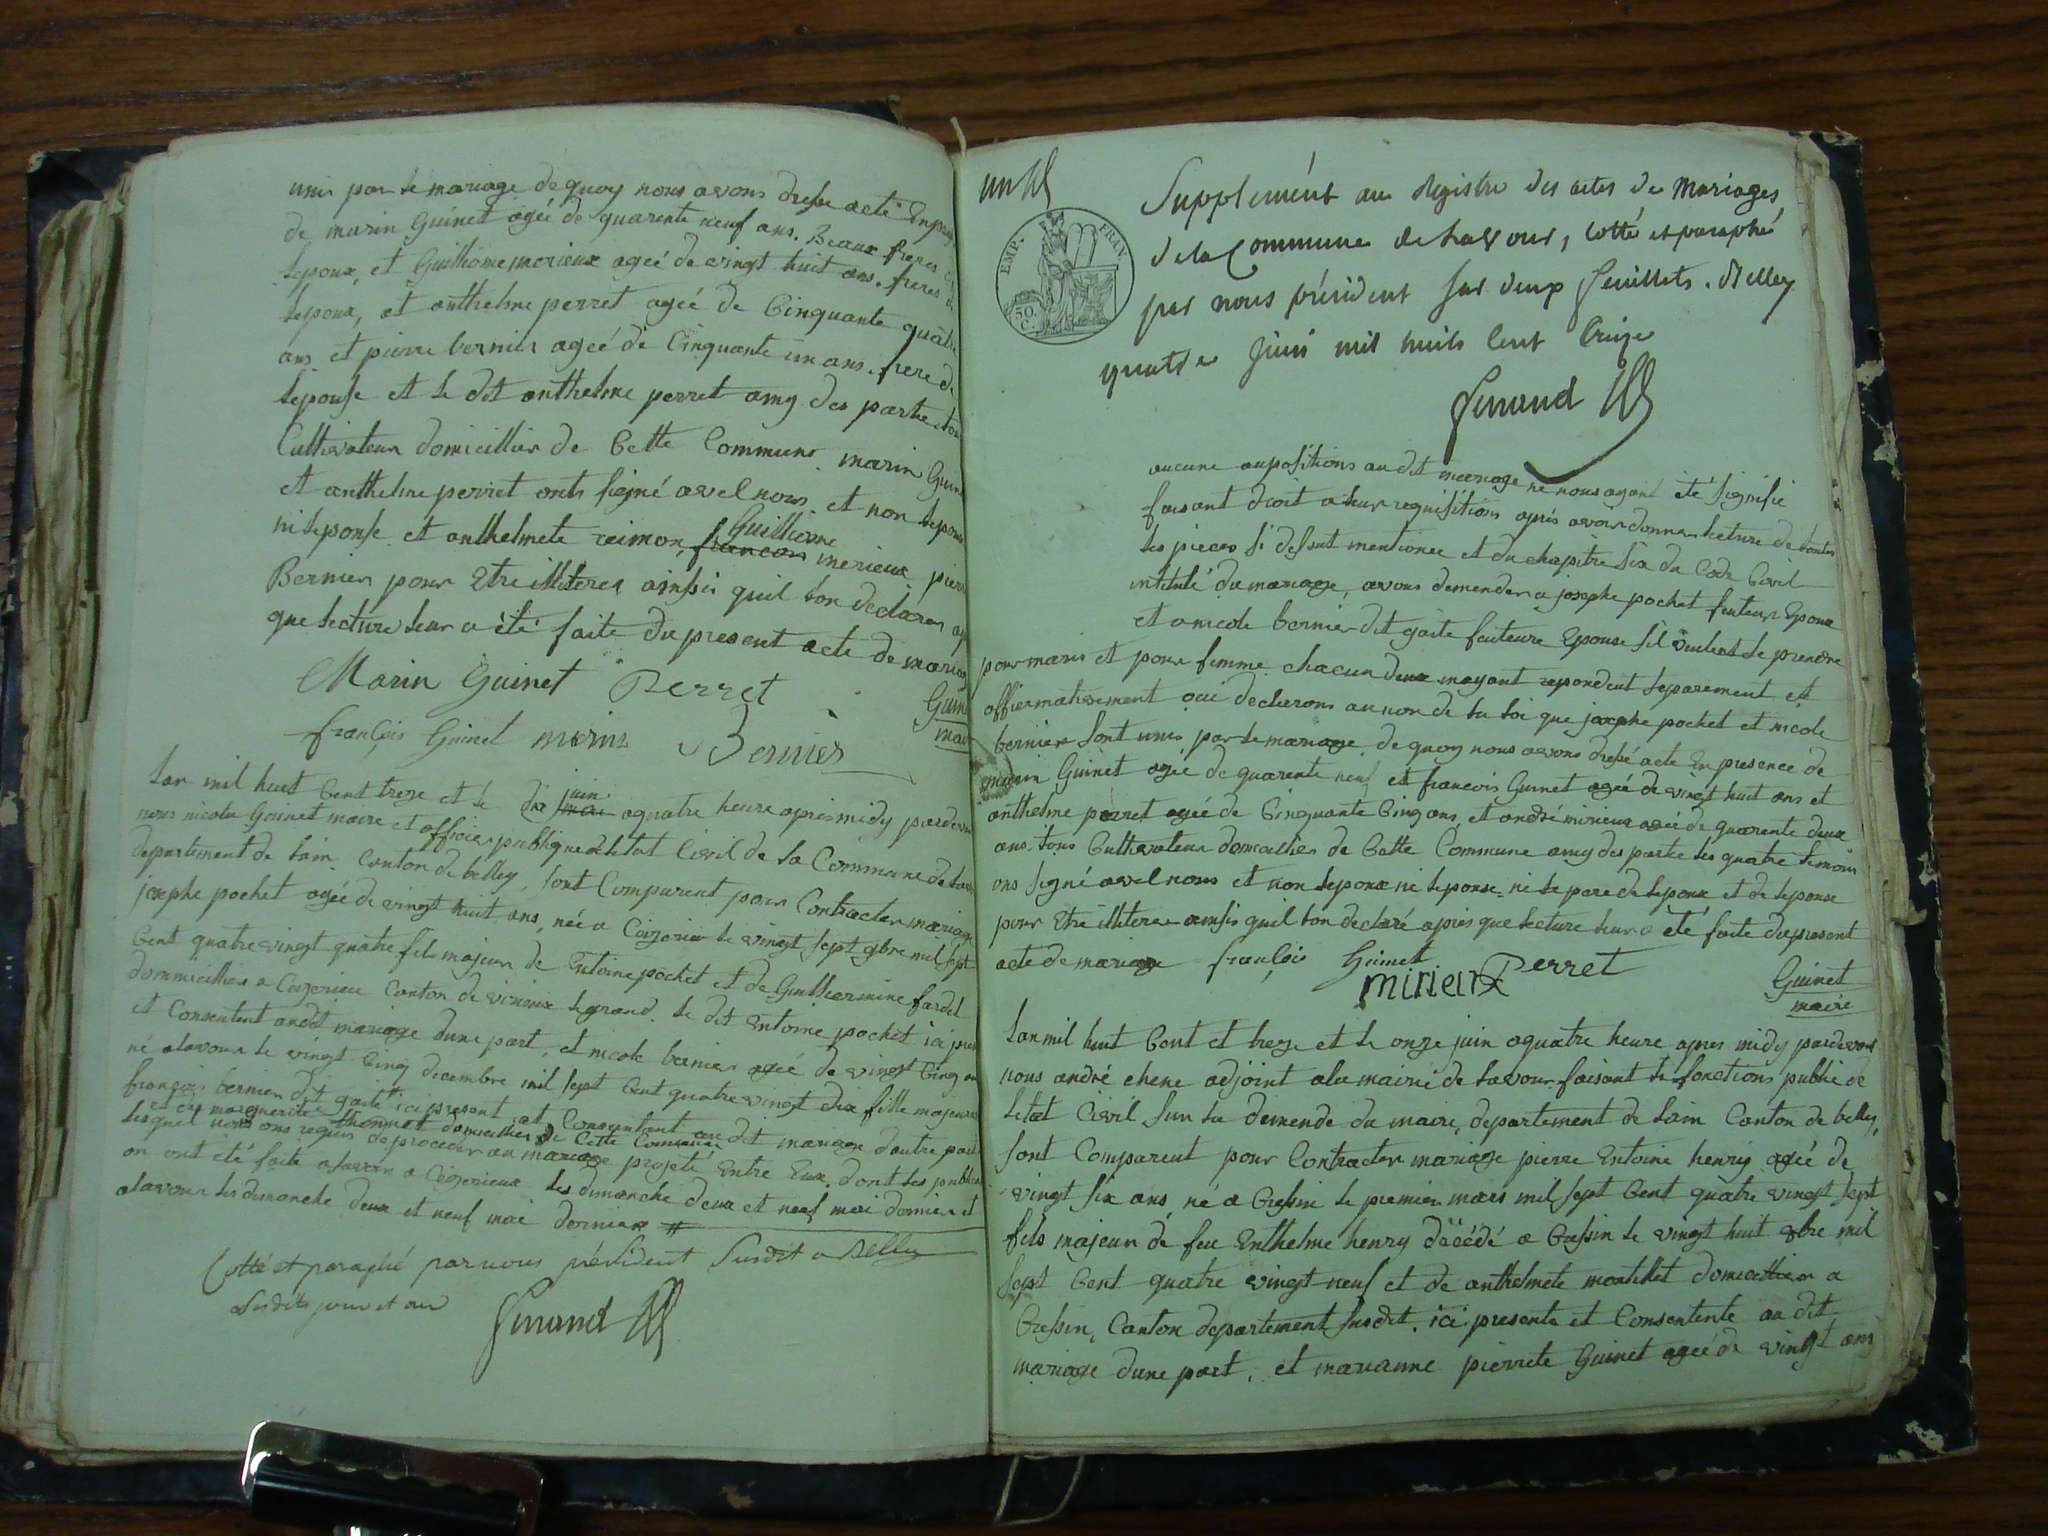 unis par le mariage de quoy nous avons dressé acte En
de marin Guinet agée de quarente neuf ans. Beaux freres
lepoux, et Guilliome merieux ageé de vingt huit ans. freres
lepoux, et anthelme perret ageé de Cinquante quatre
ans et pierre bernier ageé de Cinquante un ans. frere de
lepouse et le dit anthelme perret amy des partie
Cultivateur domicillier de Cette Commune marin Guinet
et anthelme perret onts signé avel nous et non lepoux
ni lepouse et anthelmete reimon, francois Guilliome merieux pierre
Bernier pour Etre illiteres ainssi quil lon declarer
que lecture leur a été faite du present acte de mariage
Marin Guinet Perret
Guin
mair
françois Guinet Bernier
Lan mil huit Cent treze et le dix mai juin aquatre heure apresmidy pardevant
nous nicolas Guinet maire et officier publique de letat Civil de la Commune de
departement de lain Canton de belley, sont Comparent pour Contracter mariage
josephe pochet agée de vingt huit ans, née a Ceizerieu le vingt sept 9bre mil sept
Cent quatre vingt quatre fils majeur de Entoine pochet et de Guilliermine fardel
dommicillier a Ceizerieu Canton de virieux legrand. le dit Entoine pochet ici
et Consentent audit mariage dune part, et nicole bernier agée de vingt Cinq
né alavour le vingt Cinq decembre mil sept Cent quatre vingt dix fille majeure
françois bernier dit gaite ici present et Consentant au dit mariage dautre part
et de marguerite domicillier de Cette Commune
lesquel nous ons requis de proceder au mariage projeté Entre Eux. dont les
on ont été faite alavoir a Ceizerieux les dimanche deux et neuf mai dernier et
alavour les dimanche deux et neuf mai dernier #
Cotté et paraphé par nous président susdit a Belley
lesdits jour et an
Genand

Supplément au Registre des actes de Mariages
de la Commune de Lavour, Cotté et paraphé
par nous président sur deux feuillets. Belley
quatre juin mil huits Cent treize
EMP. FRAN
50. C.
Genand
aucune oupositions audit mariage ne nous ayant été signifié
faisant droit a leur requisitions apres avoir donner lecture de toutes
les pieces si dessut mentionee et du chapitre six du Code Civil
intitulé du mariage, avons demender a josephe pochet fenteur Epoux
et a nicole bernier dit gaite feuteure Epouse sil veulent se prendre
pour maris et pour femme chacun deux mayant repondeut separement et
affiermativement oui declarons au non de la loi que josephe pochet et nicole
bernier sont unis par le mariage. de quoy nous avons dressé acte En presence de
marin Guinet agée de quarente neuf et francois Guinet agée de vingt huit ans et
anthelme perret agée de Cinquante Cinq ans, et andré mirieux agée de quarente deux
ans. tous Cultivateur domicillier de Cette Commune amy des partie les quatre temoin
ons signé avel nous et non lepoux ni lepouse ni le pere de lepoux et de lepouse
pour Etre illiteree ainssi quil lon declaré apres que lecture leur a été faite du present
acte de mariage françois Guinet
mirieux Perret
Guinet
maire
Lan mil huit Cent et treze et le onze juin aquatre heure apres midy pardevant
nous andré chene adjoint ala mairie de lavour faisant les fonctions public de
letat Civil sur la demende du maire, departement de lain Canton de belley,
sont Comparent pour Contracter mariage pierre Entoine henry agée de
vingt six ans, né a Cressin le premier mars mil sept Cent quatre vingt sept
fils majeur de feu Enthelme henry décédé a Cressin le vingt huit 8bre mil
sept Cent quatre vingt neuf et de anthelmete montillet domicillier a
Cressin, Canton departement susdit. ici presente et Consentente au dit
mariage dune part, et mareanne pierrete Guinet ageé de vingt ans